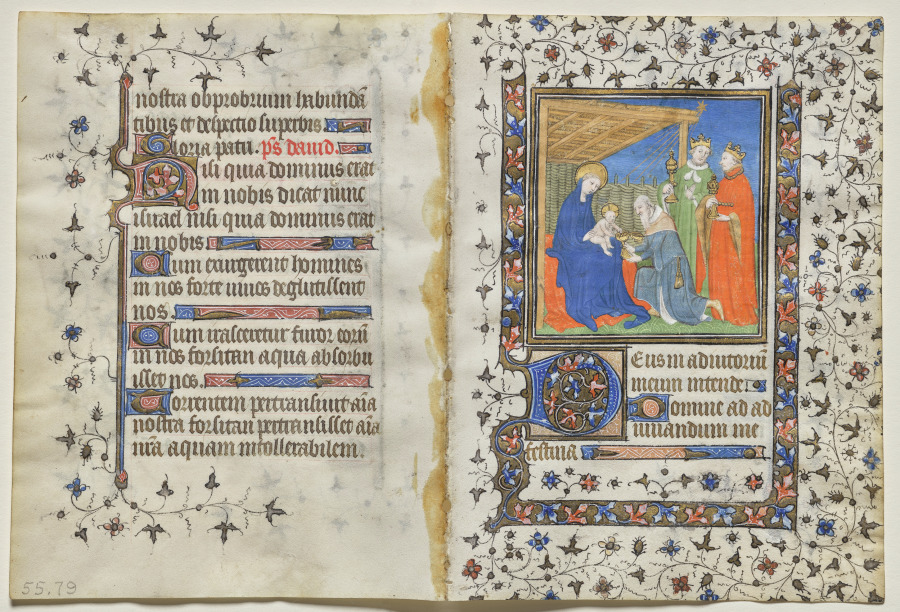 nostra obprobrium habundā
tibus et despectio superbis
Gloria patri. ps david.
Nisi quia dominus erat
in nobis dicat nunc
israel nisi quia dominus erat
in nobis
Cum exurgerent homines
in nos forte vivos deglutissent
nos.
Cum irasceretur furor eorū
in nos forsitan aqua absorbu
isset nos.
Torrentem pertransivit aīa
nostra forsitan pertransisset aīa
nrā aquam intollerabilem.
Deus in adiutoriū
meum intende:
Domine ad ad
iuvandum me
festina
55.79